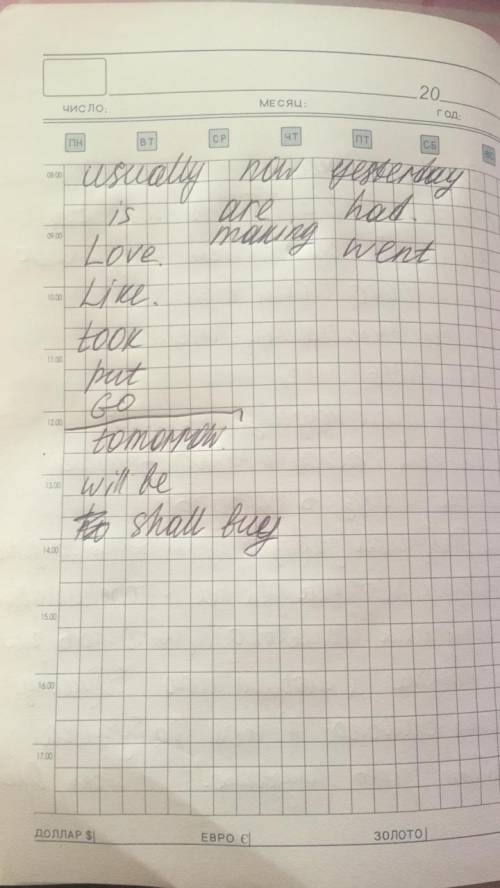 20
ЧИСЛО: МЕСЯЦ: ГОД:
ПН ВТ СР ЧТ ПТ СБ
08.00 usually now yesterday
is are had.
09.00 Love. making went
10.00 Like.
took
11.00 put
GO
12.00
tomorrow.
13.00 will be
shall buy
14.00
15.00
16.00
17.00
ДОЛЛАР $| ЕВРО €| ЗОЛОТО|